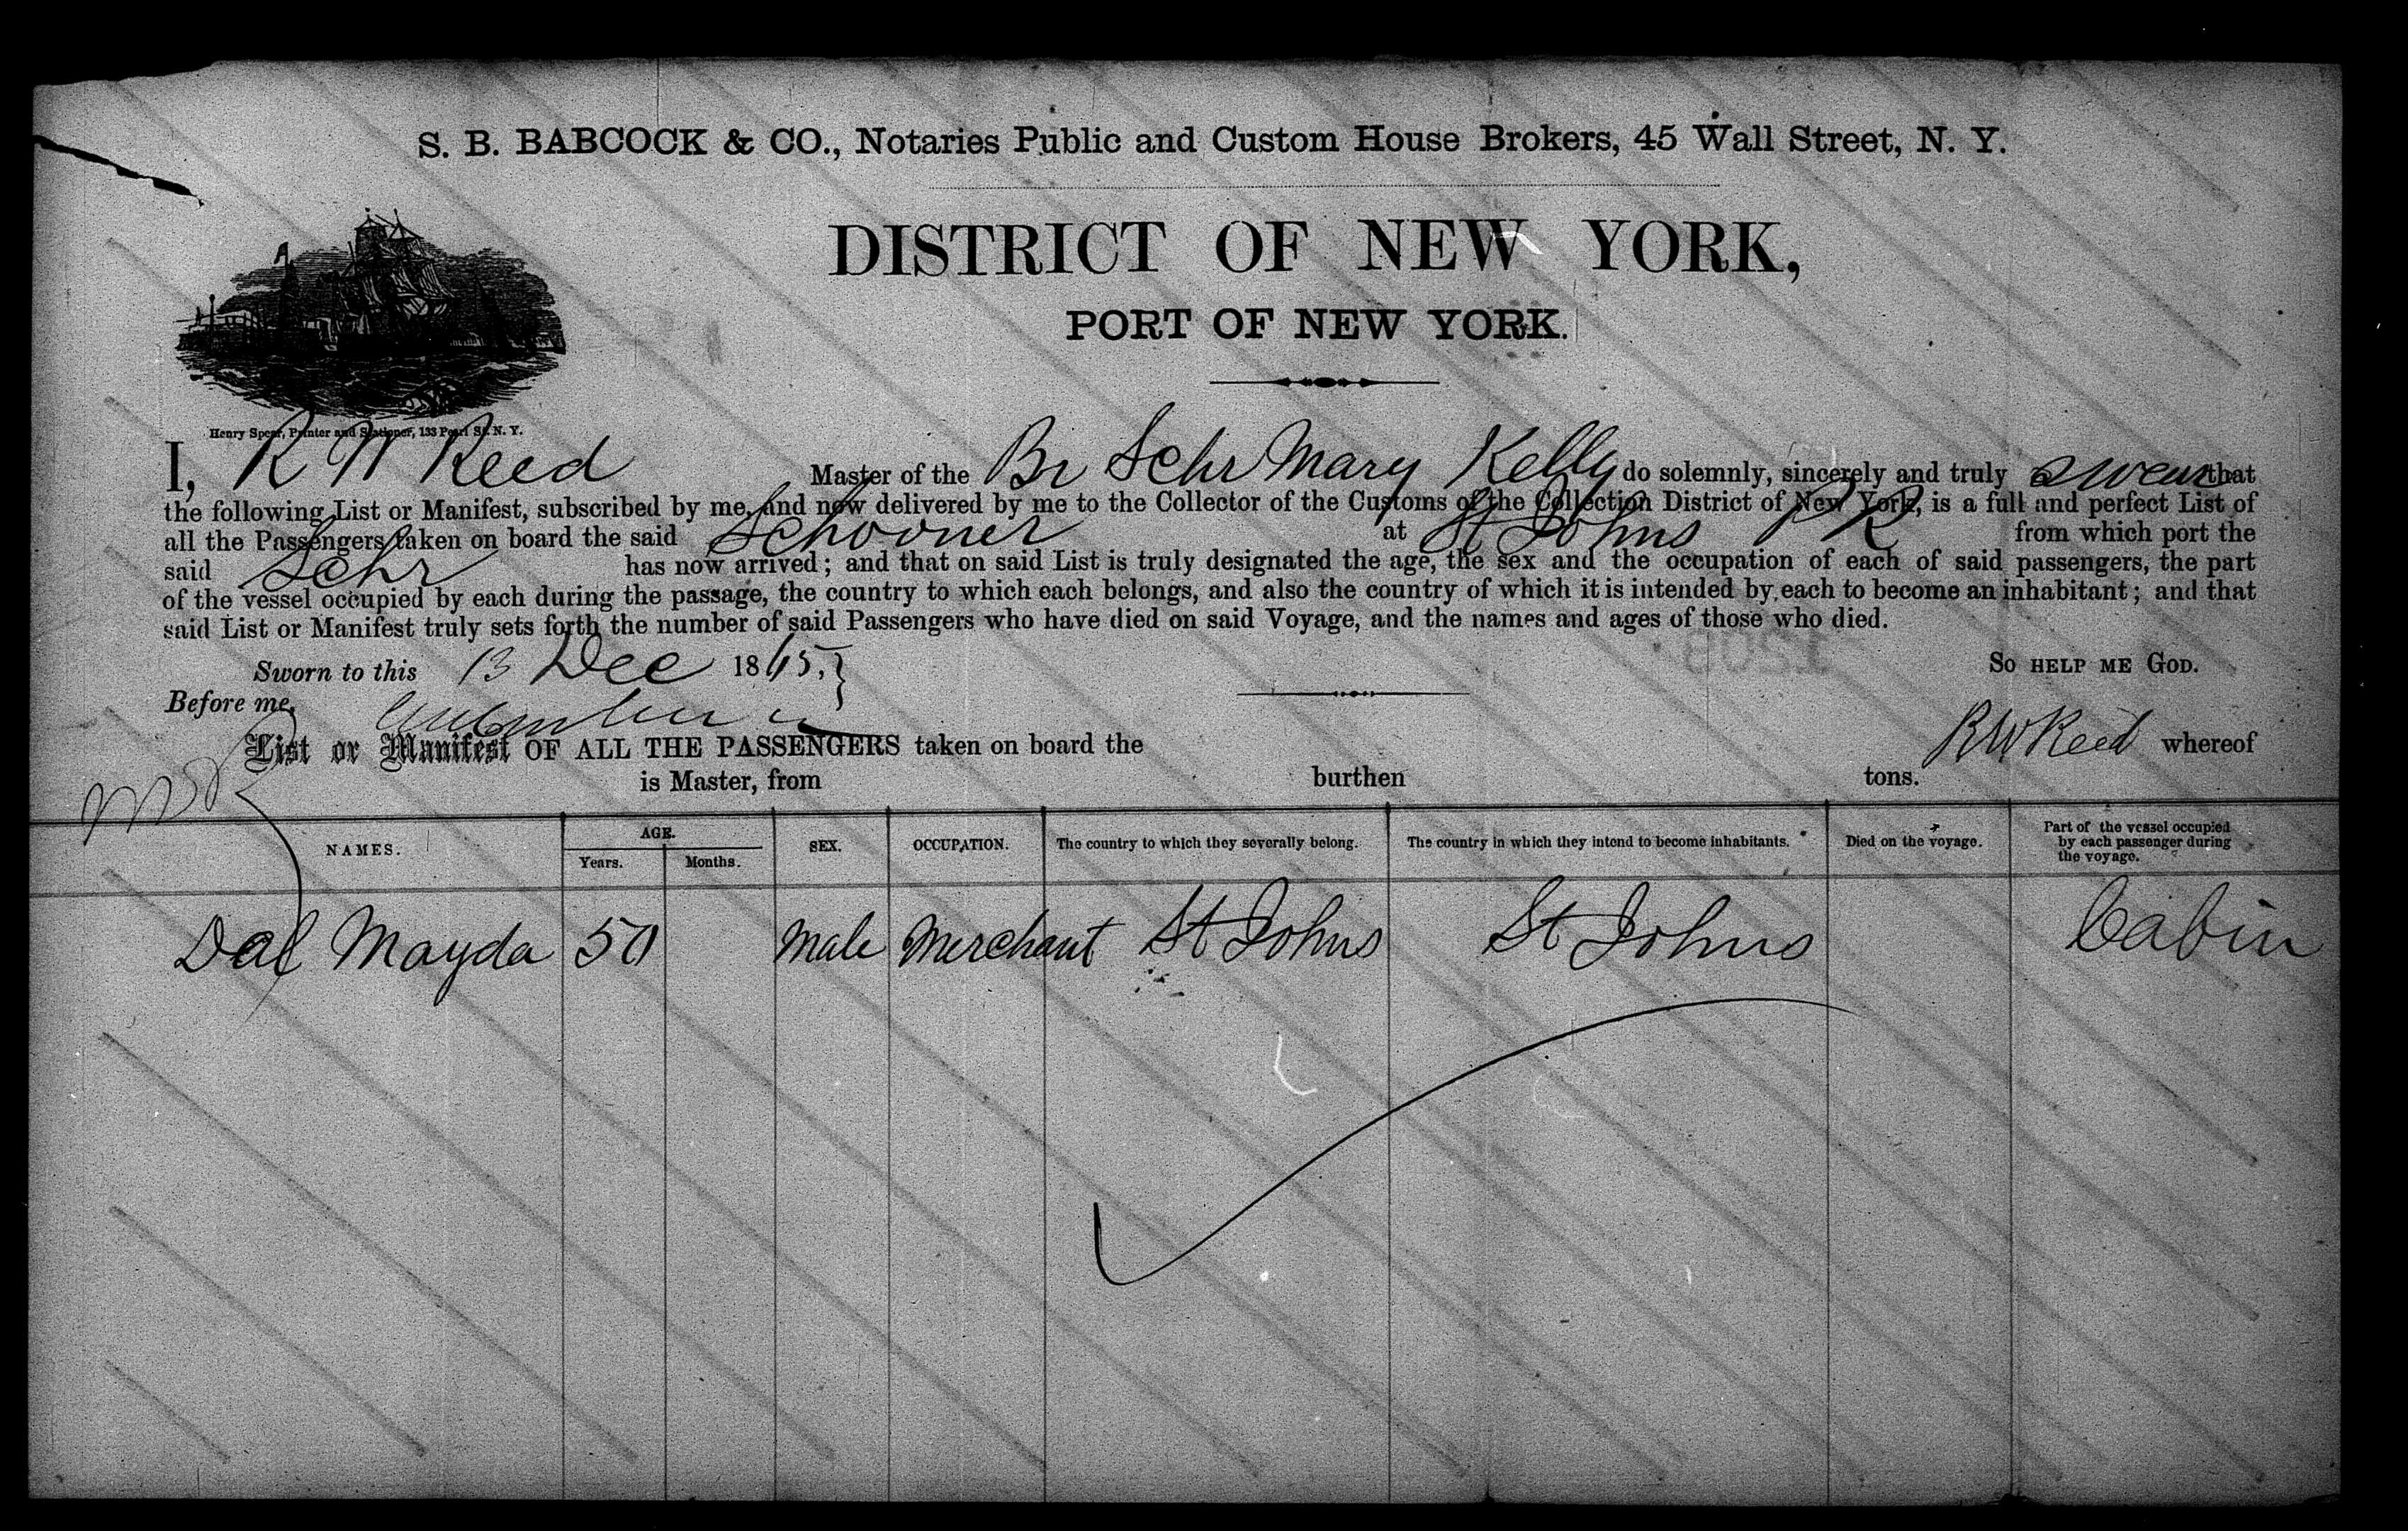 S. B. BABCOCK & CO., Notaries Public and Custom House Brokers, 45 Wall Street, N. Y.
DISTRICT OF NEW YORK,
PORT OF NEW YORK.
Henry Spear, Printer and Stationer, 133 Pearl St. N. Y.
I, R W Reed Master of the Br Schr Mary Kelly do solemnly, sincerely and truly swear that
the following List or Manifest, subscribed by me, and now delivered by me to the Collector of the Customs of the Collection District of New York, is a full and perfect List of
all the Passengers taken on board the said Schooner at St Johns P R from which port the
said Schr has now arrived; and that on said List is truly designated the age, the sex and the occupation of each of said passengers, the part
of the vessel occupied by each during the passage, the country to which each belongs, and also the country of which it is intended by each to become an inhabitant; and that
said List or Manifest truly sets forth the number of said Passengers who have died on said Voyage, and the names and ages of those who died.
Sworn to this 13 Dec 1865. SO HELP ME GOD.
Before me,
List or Manifest OF ALL THE PASSENGERS taken on board the R W Reed whereof
is Master, from burthen tons.
NAMES. AGE. Years. Months. SEX. OCCUPATION. The country to which they severally belong. The country in which they intend to become inhabitants. Died on the voyage. Part of the vessel occupied by each passenger during the voyage.
Dal Mayda 50 Male Merchant St Johns St Johns Cabin